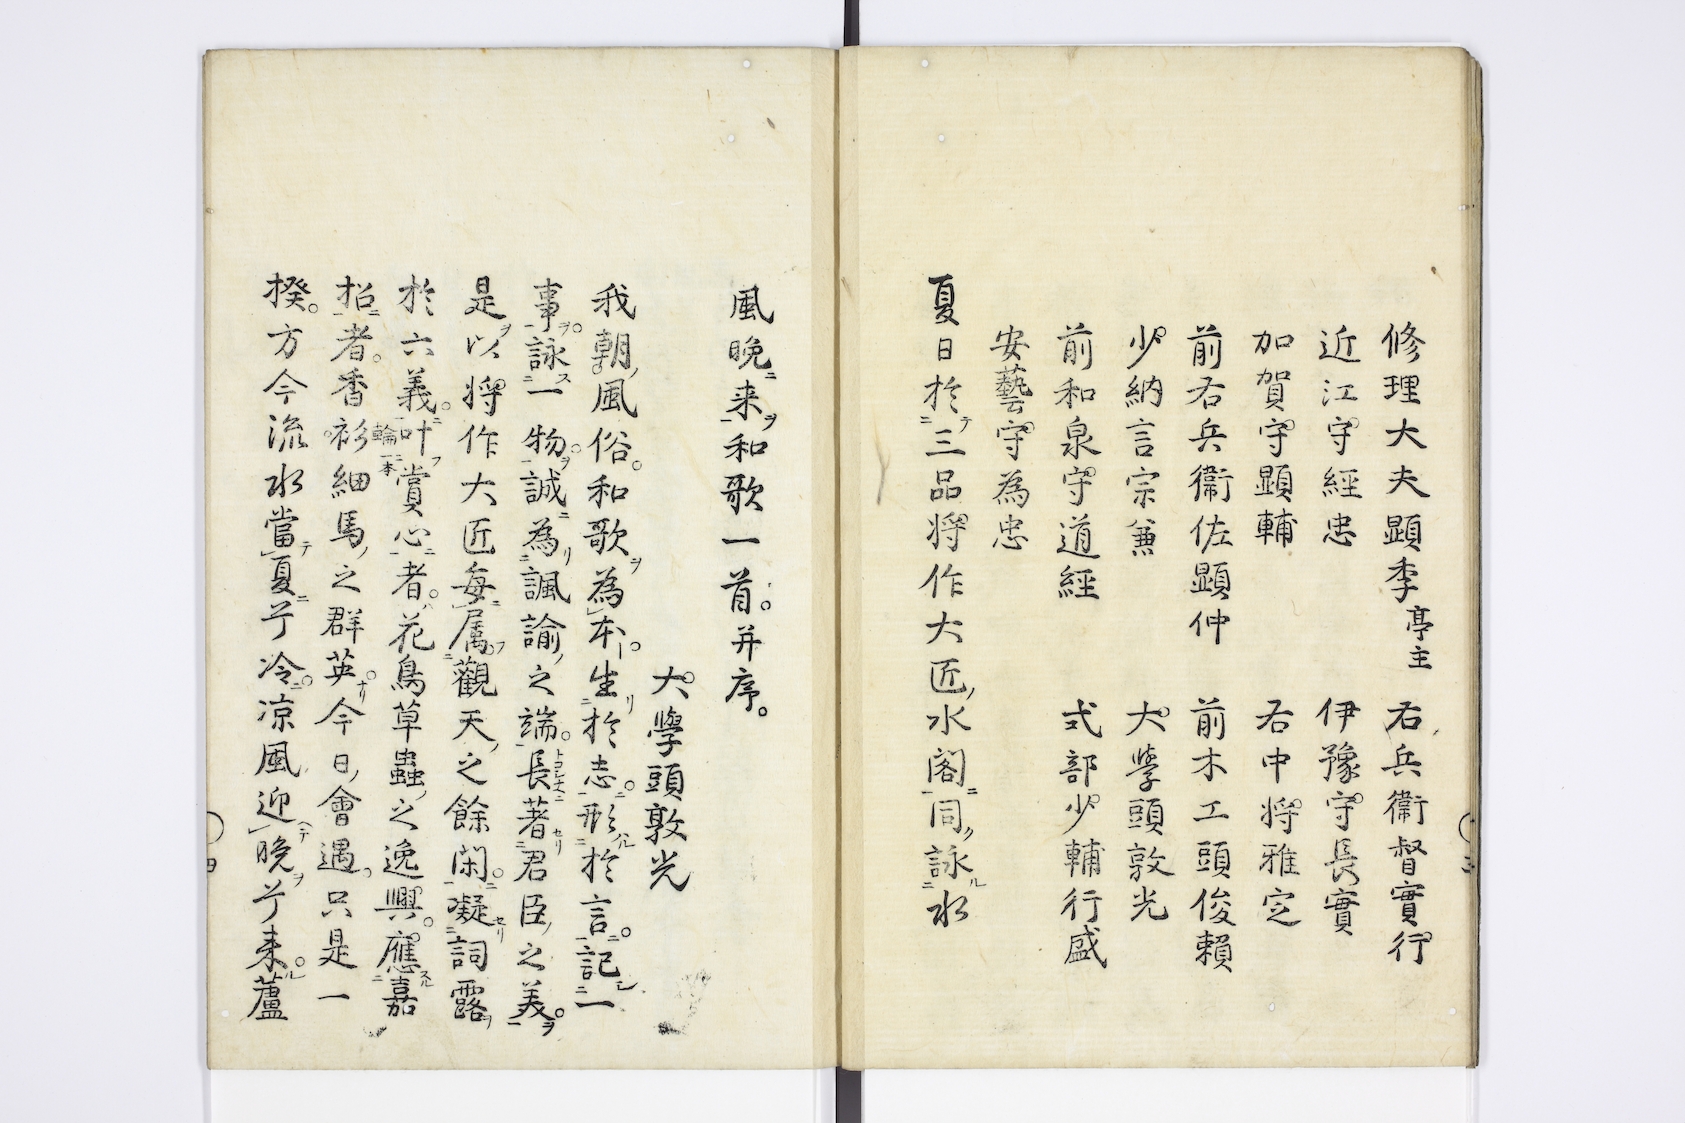 修理大夫顕季亭主　右兵衞督實行
近江守經忠　伊豫守長實
加賀守顕輔　右中将雅定
前右兵衞佐顕仲　前木工頭俊頼
少納言宗兼　大學頭敦光
前和泉守道經　式部少輔行盛
安藝守為忠
夏日於三品将作大匠水閣同詠水
風晩来和歌一首并序
大學頭敦光
我朝風俗和歌為本生於志形於言記一
事詠一物誠為諷諭之端長著君臣之美
是以将作大匠毎属觀天之餘閑凝詞露
於六義叶賞心者花鳥草蟲之逸興應嘉
招者香衫細馬之群英今日會遇只是一
揆方今流水當夏兮冷凉風迎晩兮来蘆